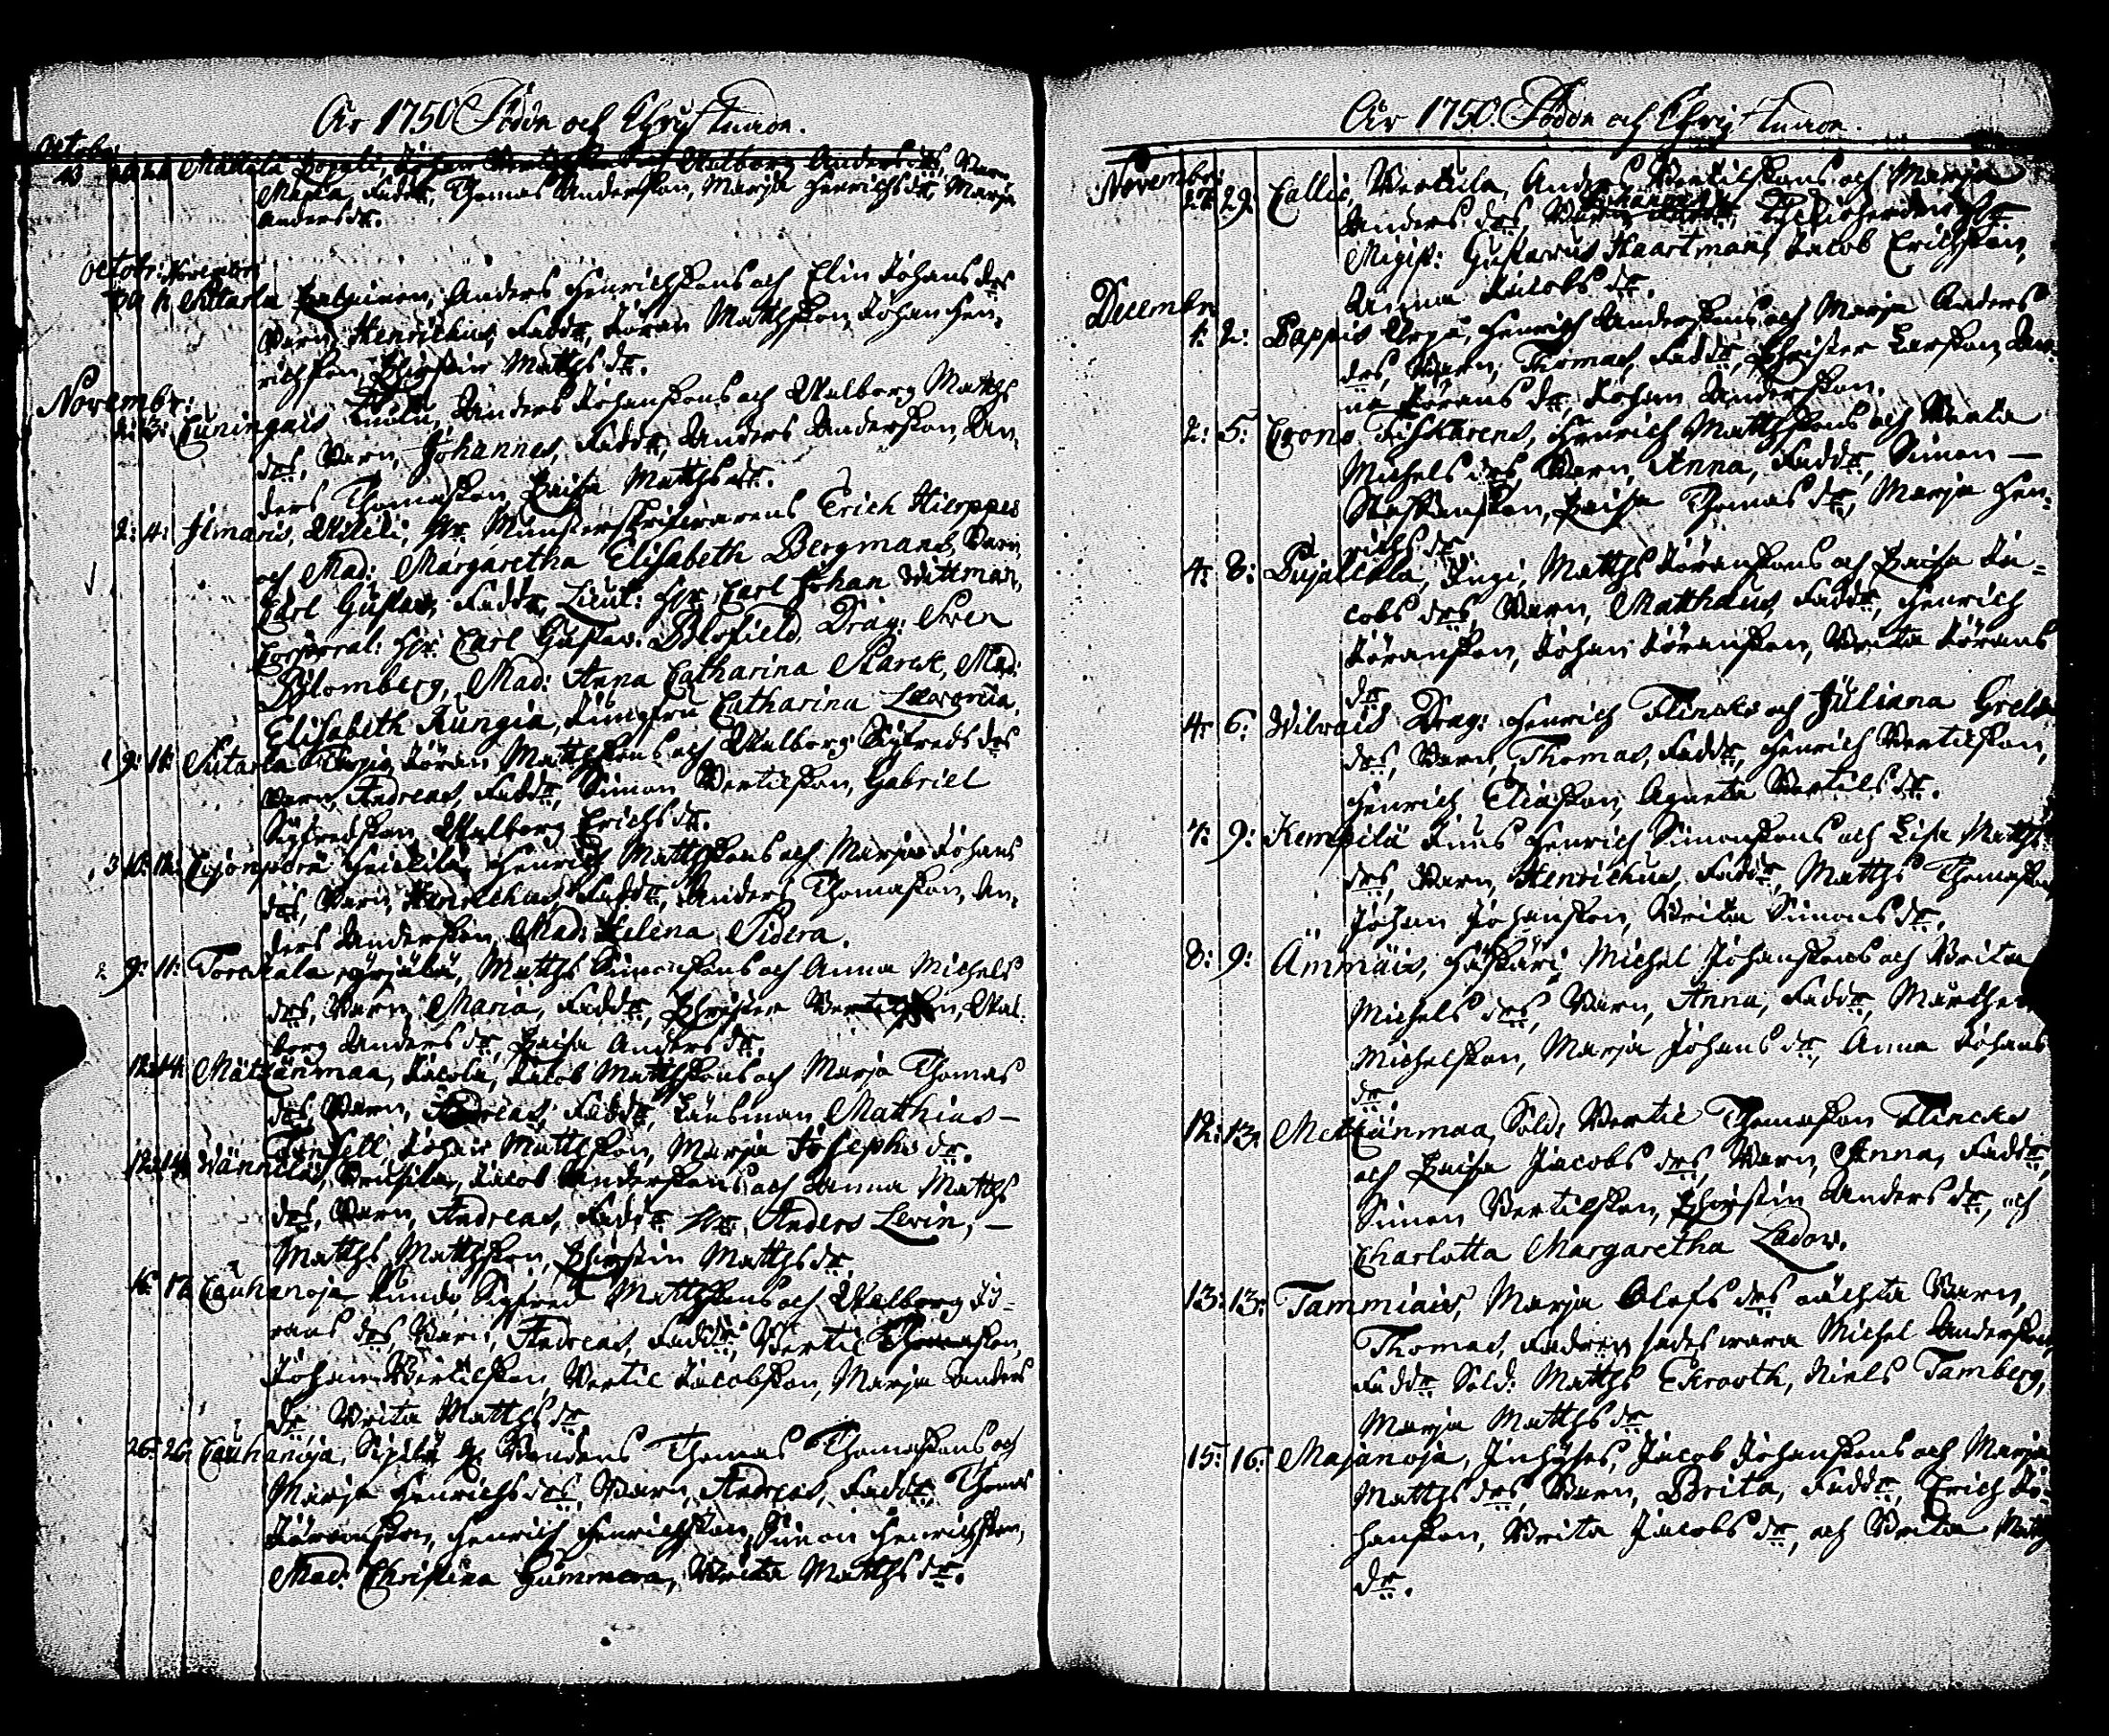 År 1750 Födde och Christnade.
Octobr:
Mattila Johan och Walborg Anders drs, Barn
Maria, Faddr, Thomas Andersson, Marja Henrichs dr, Marja
Anders dr.
Octobr: Novembr:
Anders Henrichssons och Elin Johans drs
Barn, Henrichus, Faddr, Jöran Mattsson, Johan Hen-
richsson, Christin Matths dr.
Novembr:
3: Cuningais Anders Johanssons och Walborg Matths
drs, Barn, Johannes, Faddr, Anders Andersson, An-
ders Thomasson, Caisa Matths dr.
2: 4: Ilmaris, Wileli, Hr. Munsterskrifwarens Erich Hierppes
och Mad: Margaretha Elisabeth Bergmans, Barn,
Carl Gustav, Faddr, Lieut: Hr: Carl Johan Wittman,
Corporal: Hr: Carl Gustav: Blofield, Drag: Sven
Blomberg, Mad: Anna Catharina Starck, Mad:
Elisabeth Rungia, Jungfru Catharina
9: 11: Jöran Mattssons och Walborg Sigfreds drs
Barn, Andreas, Faddr, Simon Bertilsson, Gabriel
Sigfredsson, Walborg Erichs dr.
Heickilä, Henrich Mattssons och Marja Johans
drs, Barn, Henrichus, Faddr, Anders Thomasson, An-
ders Andersson, Mad: Helena Sidera.
9: 11: Torckala, Yrjälä, Matths Simonssons och Anna Michels
drs, Barn, Maria, Faddr, Christer Bertilsson, Wal-
borg Anders dr, Caisa Anders dr.
12: 14: Mätzänmaa, Jacola, Jacob Mattssons och Marja Thomas
drs, Barn, Andreas, Faddr, Länsman Matthias —
Johan Mattsson, Marja Josephs dr.
12: 14: Wännilä, Jacob Anderssons och Anna Matths
drs, Barn, Andreas, Faddr Hr. Anders Levin, —
Matths Mattsson, Christin Matths dr.
16: 17: Cauhanoja Sigfred Mattssons och Walborg Jö-
rans drs, Barn, Andreas, Faddr, Bertil Thomasson,
Johan Bertilsson, Bertil Jacobsson, Marja Anders
dr, Brita Matths dr.
26: 26: Cauhanoja, Sipilä Thomas Thomassons och
Marja Henrichs drs, Barn, Andreas, Faddr, Thomas
Jöransson, Henrich Henrichsson, Simon Henrichsson,
Mad: Christina Gummera, Brita Matths dr.
År 1750. Födde och Christnade.
Novembr:
27: 29: Callis, Bertula, Anders Bertilssons och Marja
Anders drs, Barn Johannes
Magist: Gustavus Haartman, Jacob Erichsson,
Anna Jacobs dr.
Decembr:
1: 2: Pappis Henrich Anderssons och Marja Anders
drs, Barn, Thomas, Faddr, Christer Larsson, An-
na Jörans dr, Johan Andersson.
2: 5: Henrich Mattssons och Beata
Michels drs, Barn, Anna, Faddr, Simon —
Staffansson, Caisa Thomas dr, Marja Hen-
richs dr
4: 8: Pujalckla, Matths Jöranssons och Caisa Ja-
cobs drs, Barn, Matthæus, Faddr, Henrich
Jöransson, Johan Jöransson, Brita Jörans
dr
4: 6: Wilvais Drag: Henrich Flincks och Juliana Grels
drs, Barn, Thomas, Faddr, Henrich Bertilsson,
Henrich Eliasson, Agneta Bertils dr.
4: 9: Kempilä Juus Henrich Simonssons och Lisa Matths
drs, Barn, Henrichus, Faddr, Matths Thomasson
Johan Johansson, Brita Simons dr.
8: 9: Ämmäis, Michel Johanssons och Brita
Michels drs, Barn, Anna, Faddr, Märthen
Michelsson, Marja Johans dr, Anna Johans
dr.
12: 13: Metzänmaa, Sold: Bertil Thomasson Flincks
och Caisa Jacobs drs, Barn, Anna, Faddr,
Simon Bertilsson, Christin Anders dr, och
Charlotta Margaretha Ladow.
13: 13: Tammiais, Marja Olofs drs oächta Barn,
Thomas, Fadren sades wara Michel Andersson,
Faddr Sold: Matths Ekrooth, Niels Tamberg,
Marja Matths dr
15: 16: Majanoja, Juhyses, Jacob Johanssons och Marja
Matths drs, Barn, Brita, Faddr, Erich Jo-
hansson, Brita Jacobs dr, och Brita Matths
dr.